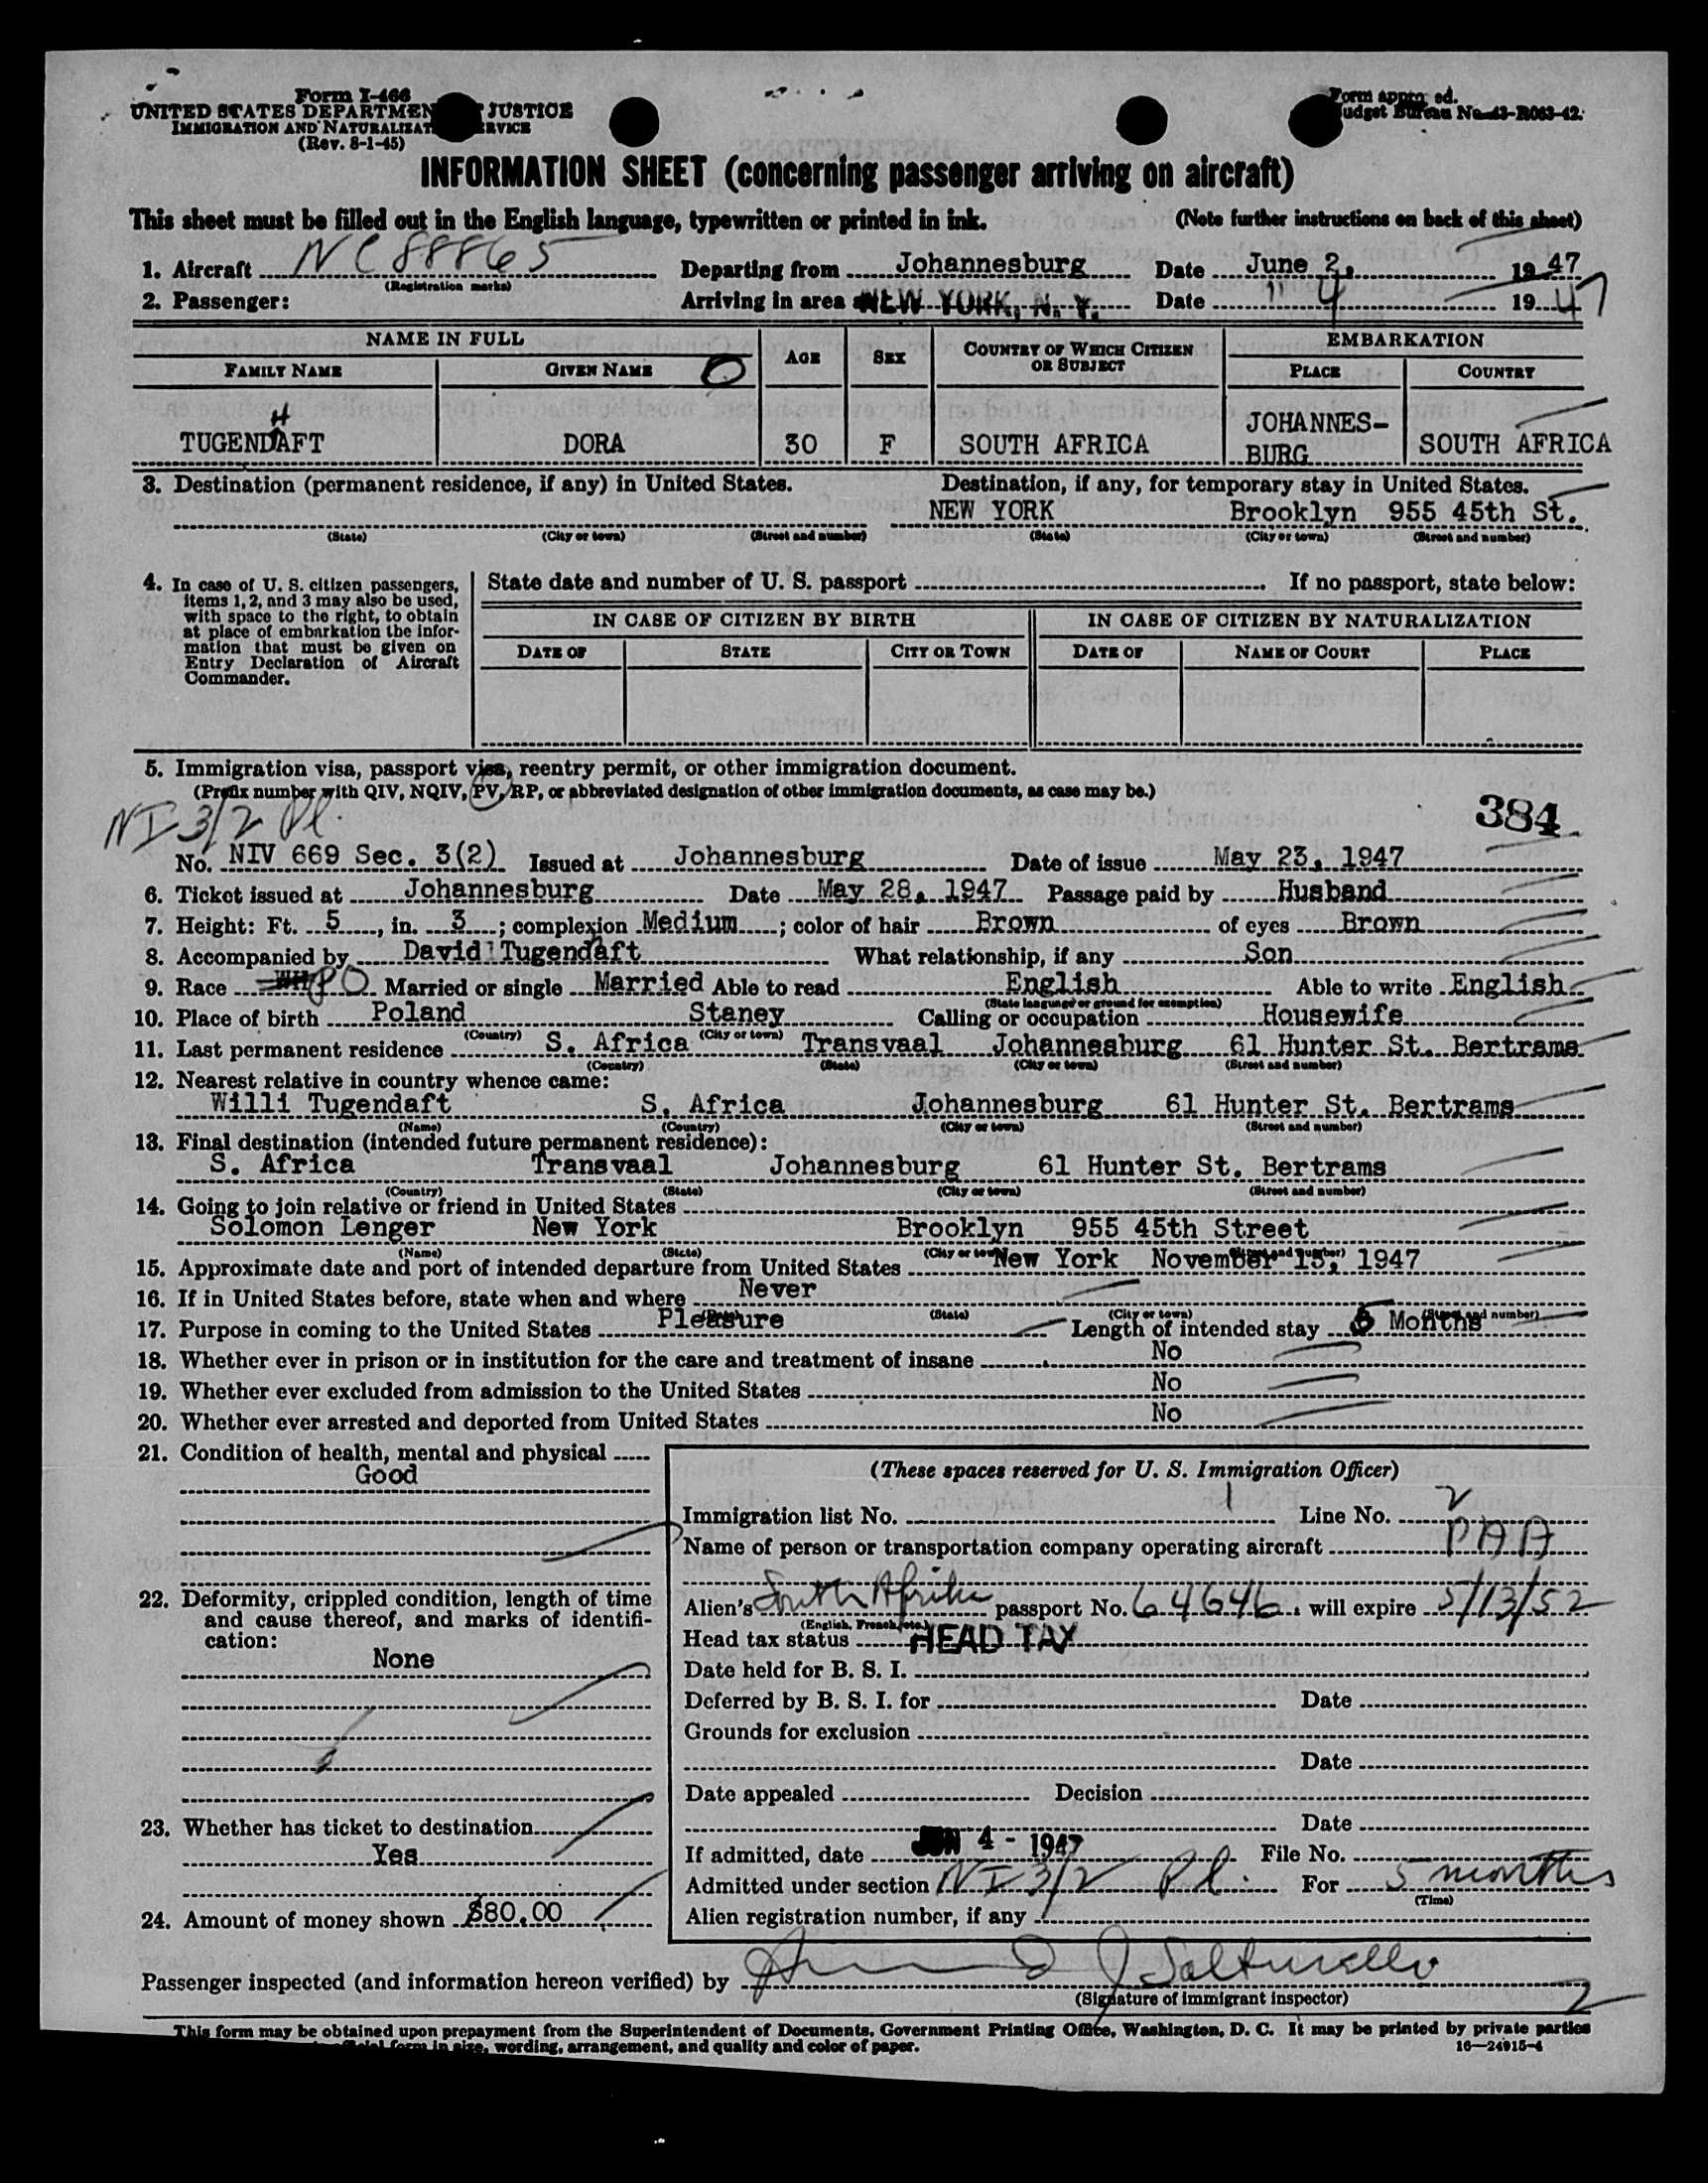 Form I-466
UNITED STATES DEPARTMEN JUSTICE
IMMIGRATION AND NATURALIZAT ERVICE
(Rev. 8-1-45)
Form appro ed.
udget Bureau No. 43-R063-42.
INFORMATION SHEET (concerning passenger arriving on aircraft)
This sheet must be filled out in the English language, typewritten or printed in ink. (Note further instructions on back of this sheet)
1. Aircraft NC 88865 Departing from Johannesburg Date June 2, 1947
(Registration marks)
2. Passenger: Arriving in area of NEW YORK, N. Y. Date " 4 1947
NAME IN FULL AGE SEX COUNTRY OF WHICH CITIZEN OR SUBJECT EMBARKATION
FAMILY NAME GIVEN NAME PLACE COUNTRY
H
TUGENDAFT DORA 30 F SOUTH AFRICA JOHANNES-BURG SOUTH AFRICA
3. Destination (permanent residence, if any) in United States. Destination, if any, for temporary stay in United States.
NEW YORK Brooklyn 955 45th St.
(State) (City or town) (Street and number) (State) (City or town) (Street and number)
4. In case of U. S. citizen passengers,
items 1, 2, and 3 may also be used,
with space to the right, to obtain
at place of embarkation the infor-
mation that must be given on
Entry Declaration of Aircraft
Commander.
State date and number of U. S. passport If no passport, state below:
IN CASE OF CITIZEN BY BIRTH IN CASE OF CITIZEN BY NATURALIZATION
DATE OF STATE CITY OR TOWN DATE OF NAME OF COURT PLACE
5. Immigration visa, passport visa, reentry permit, or other immigration document.
(Prefix number with QIV, NQIV, PV, RP, or abbreviated designation of other immigration documents, as case may be.)
NI 3/2 Pl.
384
No. NIV 669 Sec. 3(2) Issued at Johannesburg Date of issue May 23, 1947
6. Ticket issued at Johannesburg Date May 28, 1947 Passage paid by Husband
7. Height: Ft. 5, in. 3; complexion Medium; color of hair Brown of eyes Brown
8. Accompanied by David Tugendaft What relationship, if any Son
9. Race PO Married or single Married Able to read English Able to write English
(State language or ground for exemption)
10. Place of birth Poland Staney Calling or occupation Housewife
(Country) (City or town)
11. Last permanent residence S. Africa Transvaal Johannesburg 61 Hunter St. Bertrams
(Country) (State) (City or town) (Street and number)
12. Nearest relative in country whence came:
Willi Tugendaft S. Africa Johannesburg 61 Hunter St. Bertrams
(Name) (Country) (City or town) (Street and number)
13. Final destination (intended future permanent residence):
S. Africa Transvaal Johannesburg 61 Hunter St. Bertrams
(Country) (State) (City or town) (Street and number)
14. Going to join relative or friend in United States
Solomon Lenger New York Brooklyn 955 45th Street
(Name) (State) (City or town) (Street and number)
15. Approximate date and port of intended departure from United States New York November 15, 1947
16. If in United States before, state when and where Never
(Date) (State) (City or town) (Street and number)
17. Purpose in coming to the United States Pleasure Length of intended stay 5 Months
18. Whether ever in prison or in institution for the care and treatment of insane No
19. Whether ever excluded from admission to the United States No
20. Whether ever arrested and deported from United States No
21. Condition of health, mental and physical
Good
22. Deformity, crippled condition, length of time
and cause thereof, and marks of identifi-
cation:
None
23. Whether has ticket to destination
Yes
24. Amount of money shown $80.00
(These spaces reserved for U. S. Immigration Officer)
Immigration list No. 1 Line No. 2
Name of person or transportation company operating aircraft PAA
Alien's South Afrika passport No. 64646. will expire 5/13/52
(English, French, etc.)
Head tax status HEAD TAX
Date held for B. S. I.
Deferred by B. S. I. for Date
Grounds for exclusion
Date
Date appealed Decision
Date
If admitted, date JUN 4 - 1947 File No.
Admitted under section NI 3/2 Pl. For 5 months
(Time)
Alien registration number, if any
Passenger inspected (and information hereon verified) by
(Signature of immigrant inspector)
2
This form may be obtained upon prepayment from the Superintendent of Documents, Government Printing Office, Washington, D. C. It may be printed by private parties
official form in size, wording, arrangement, and quality and color of paper.
16—24915-4